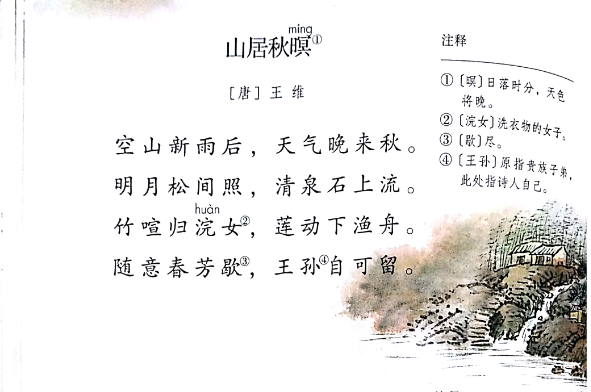 míng
山居秋暝①
〔唐〕王 维
空山新雨后，天气晚来秋。
明月松间照，清泉石上流。
huàn
竹喧归浣女②，莲动下渔舟。
随意春芳歇③，王孙④自可留。
注释
①〔暝〕日落时分，天色
将晚。
②〔浣女〕洗衣物的女子。
③〔歇〕尽。
④〔王孙〕原指贵族子弟，
此处指诗人自己。